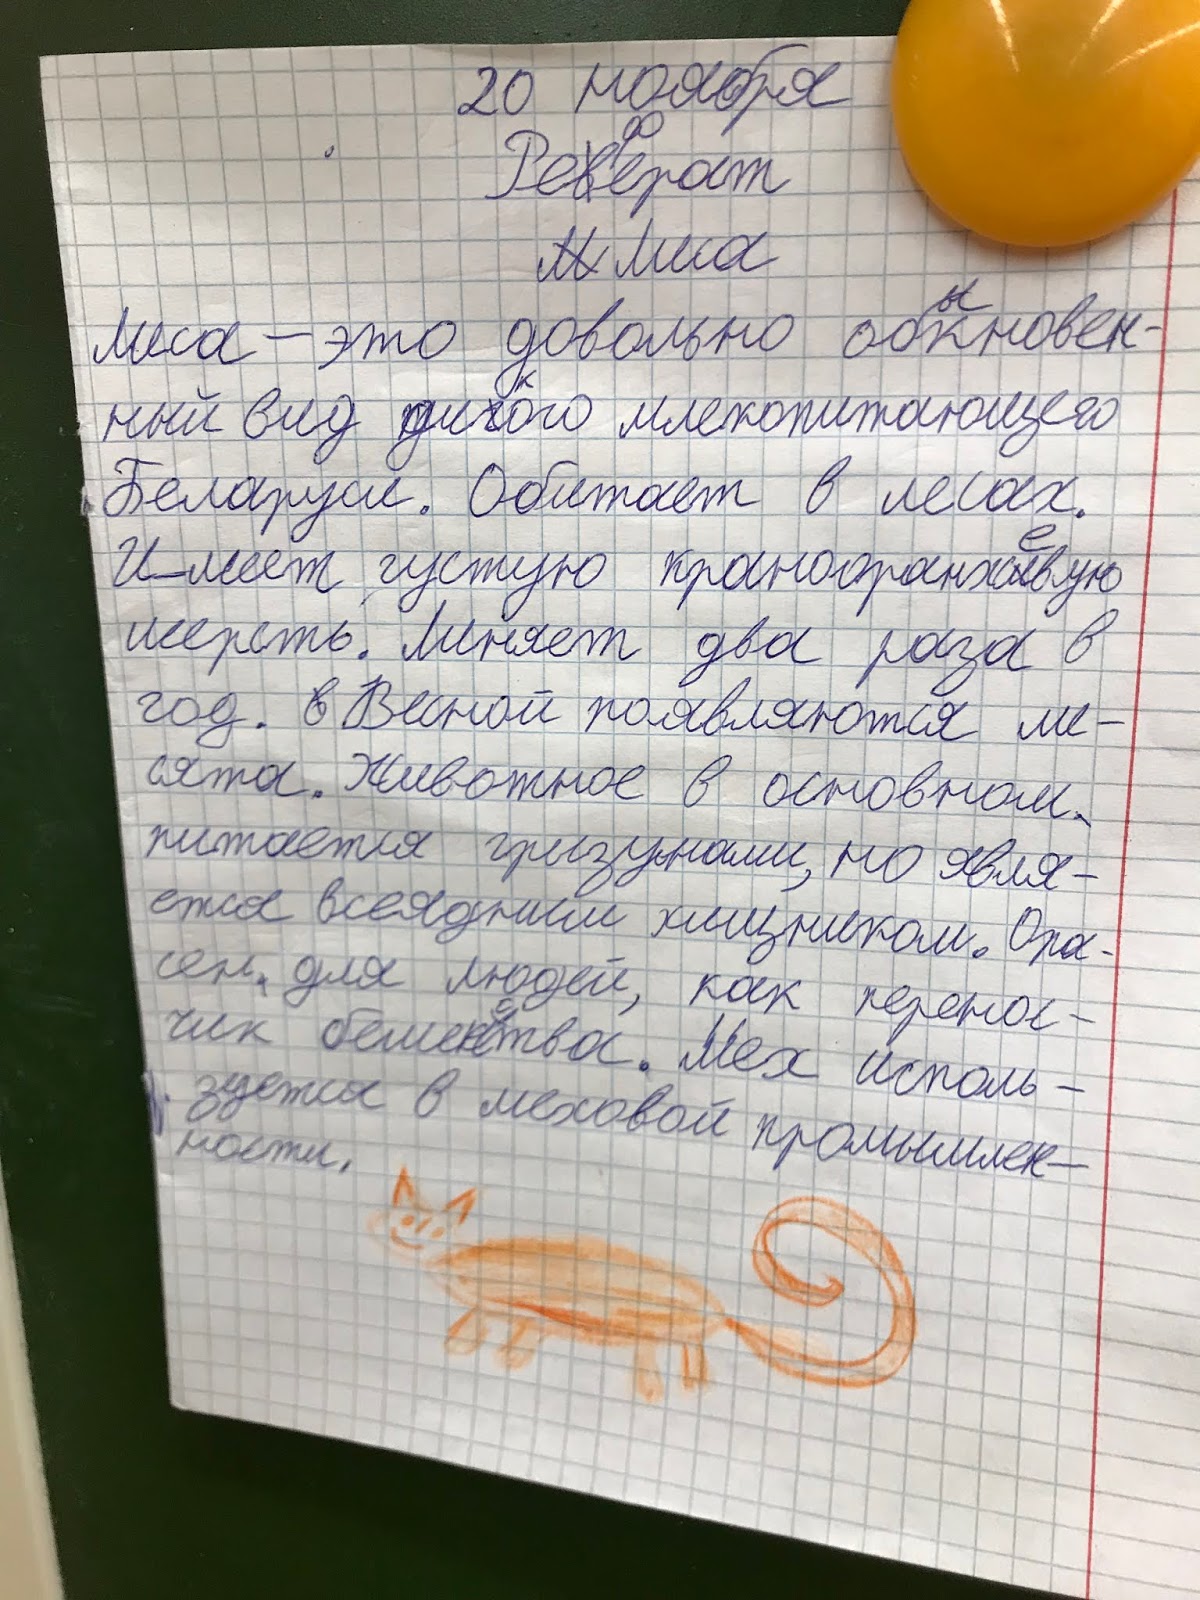 20 ноября
Реферат
Лиса
Лиса – это довольно обыкновен-
ный вид дикого млекопитающего
Беларуси. Обитает в лесах.
Имеет густую краноораньжевую
шерсть. Линяет два раза в
год. Весной появляются ли-
сята. Животное в основном
питается грызунами, но явля-
ется всеядным хищником. Опа-
сен для людей, как перенос-
чик бешенства. Мех исполь-
зуется в меховой промышлен-
ности.